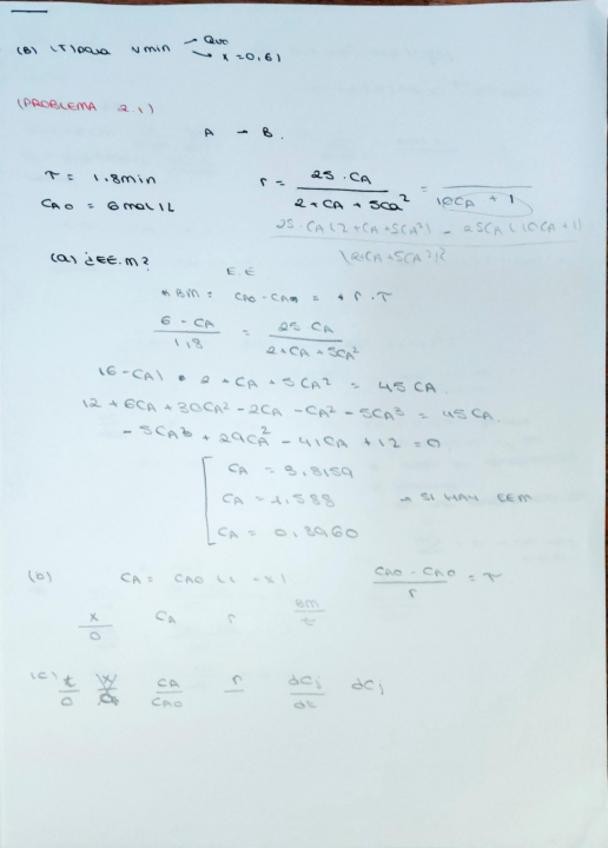 (B) (T) para vmin → Qvo
→ x = 0,61
(PROBLEMA 2.1)
A → B.
τ = 1.8min
CAO = 6mol/L
r = 25·CA / 2+CA+5CA² = / 10CA + 1
25·CA(2+CA+5CA²) - 25CA(10CA+1) / (2+CA+5CA²)²
(a) ¿EE.M?
E.E
BM: CAO-CA = + r.τ
6 - CA / 1,8 = 25 CA / 2+CA+5CA²
(6-CA) • 2 + CA + 5CA² = 45CA.
12 + 6CA + 30CA² - 2CA - CA² - 5CA³ = 45CA.
- 5CA³ + 29CA² - 41CA + 12 = 0
CA = 3,8159
CA = 1.588 → SI HAY EEM
CA = 0,3960
(b) CA = CAO (1 - x) CAO - CAO / r = τ
x / 0 CA r BM / t
(c) t / 0 CA / CAO r dCj / dt dCj